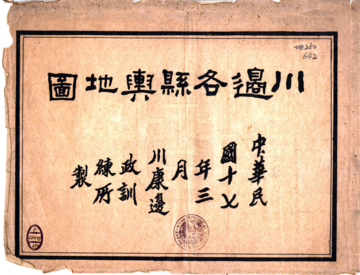 川邊各縣輿地圖
中華民
國十七
年三
月
川康邊
政訓
練所
製